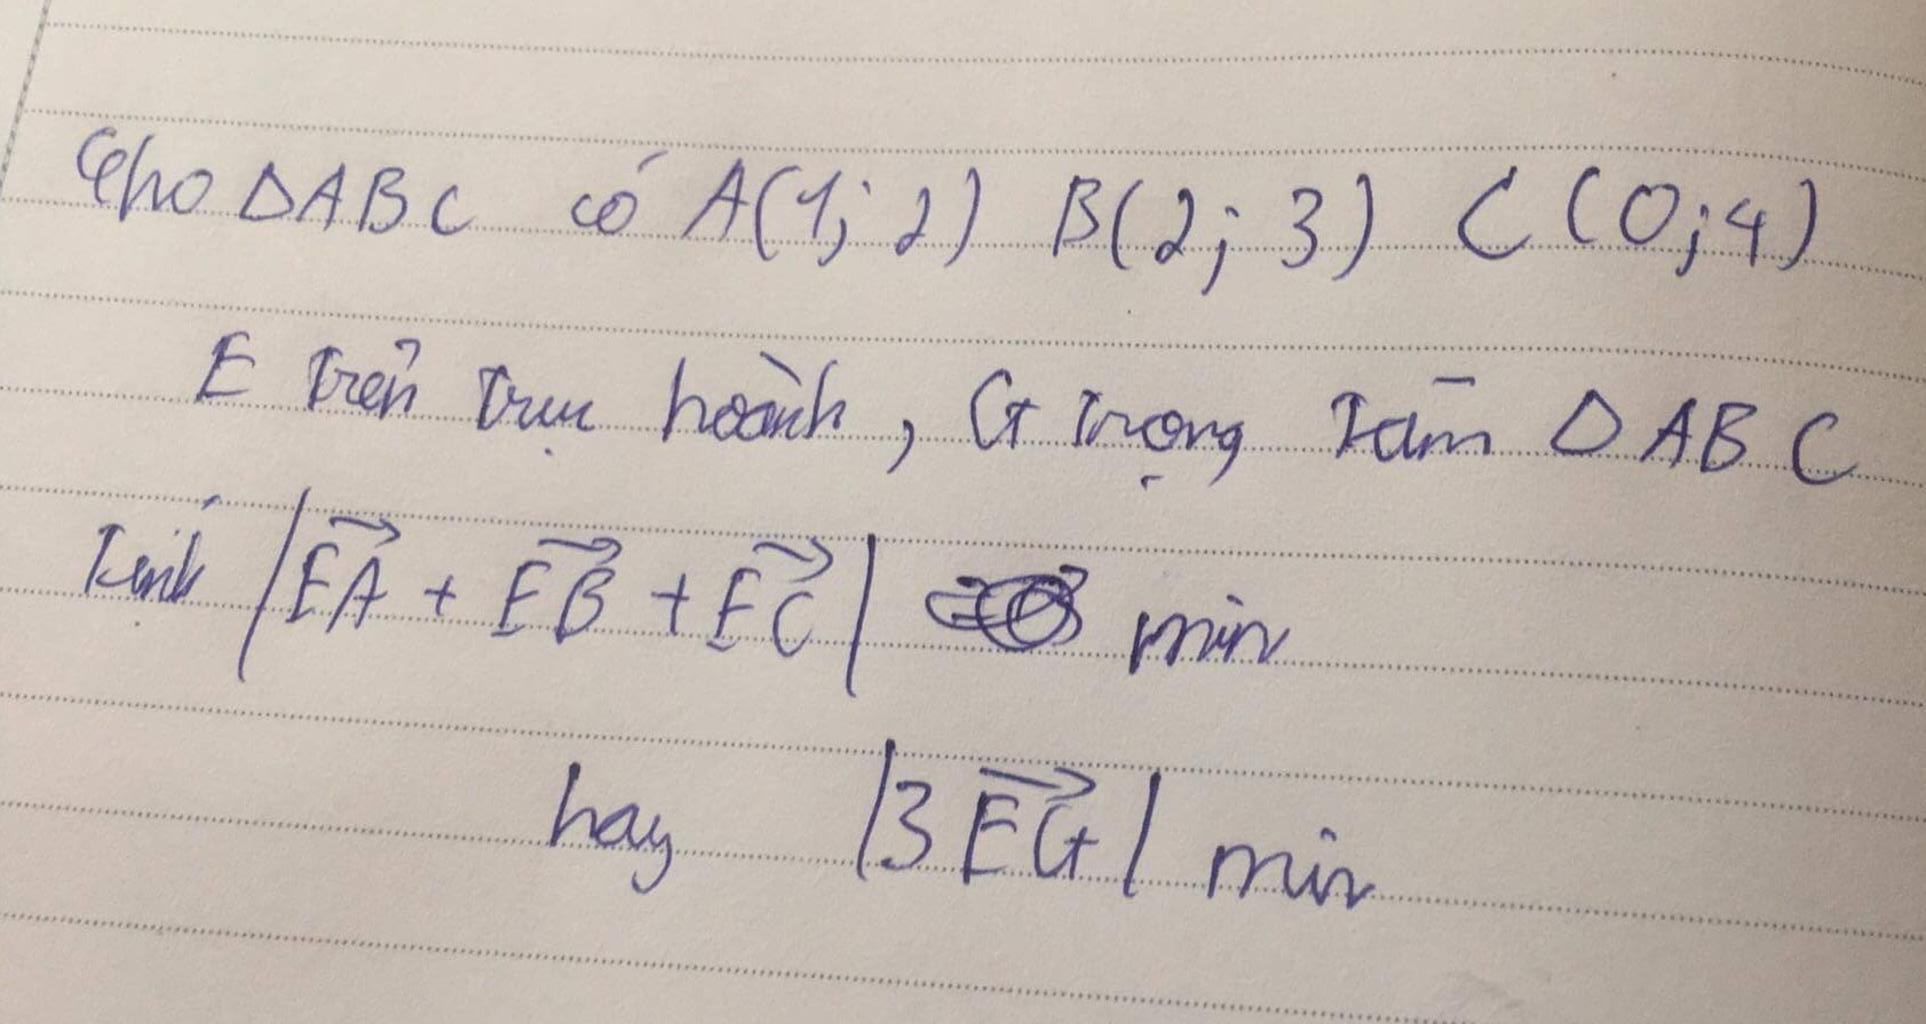 Cho ΔABC có A(1; 2) B(2; 3) C(0; 4)
E trên trục hoành, G trọng tâm ΔABC
Tính |EA + EB + EC| min
hay |3EG| min